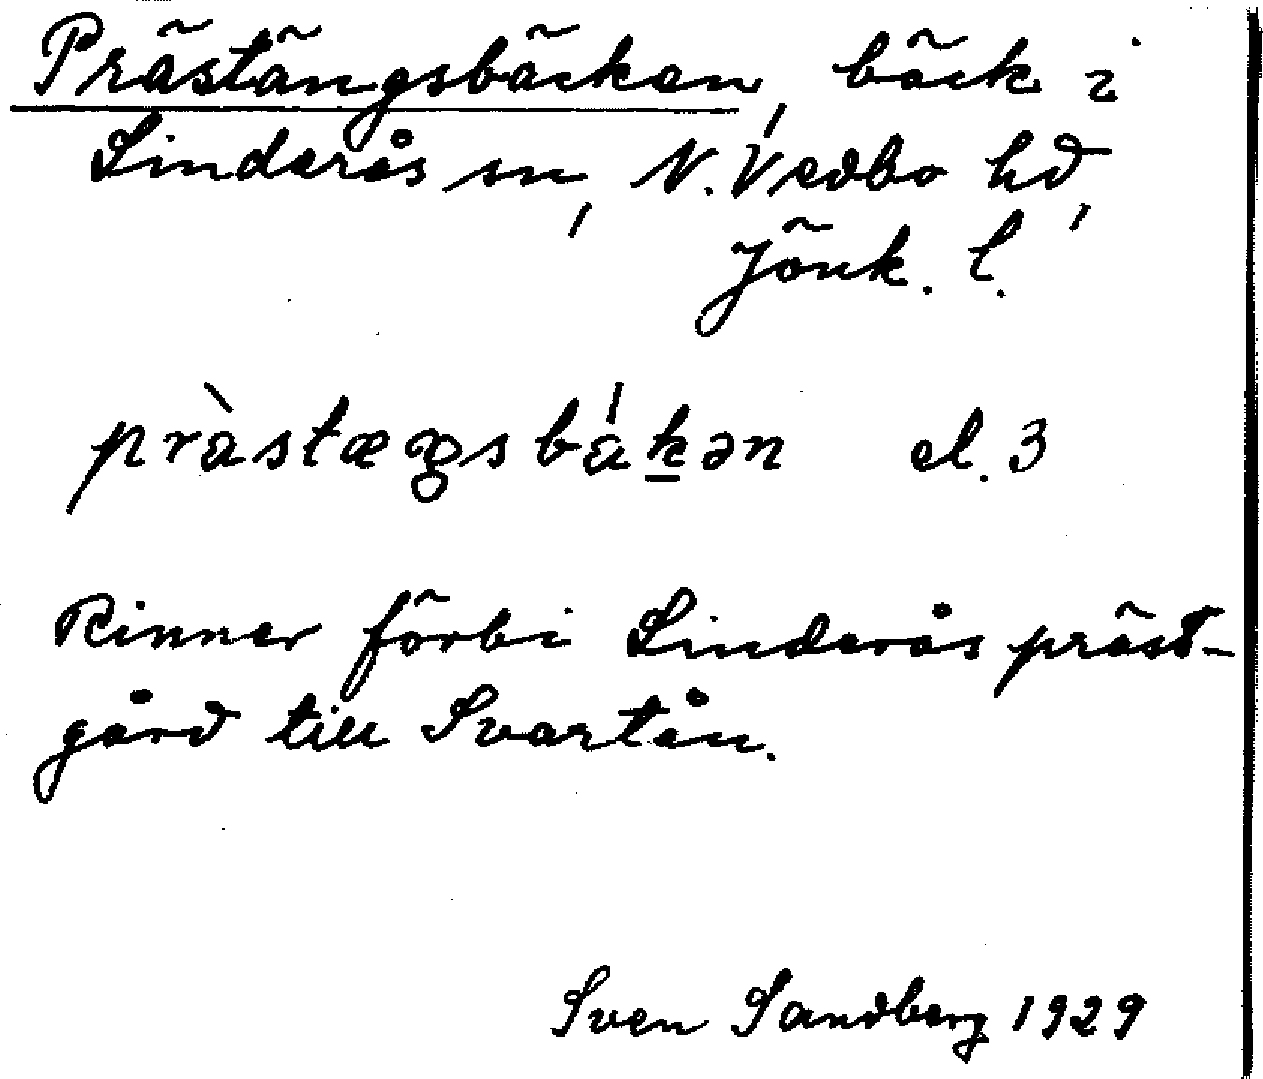 Prästängsbäcken, bäck i
Linderås sn, N. Vedbo hd,
Jönk. l.
pràstæŋsbákən el. 3
Rinner förbi Linderås präst-
gård till Svartån.
Sven Sandberg 1929